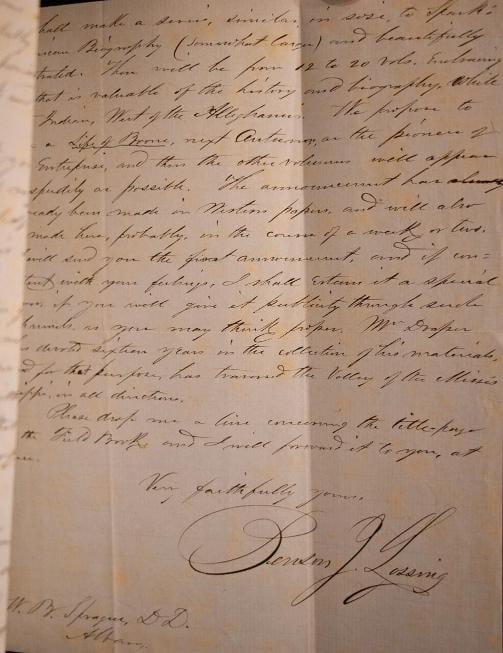 hall make a series, similar, in size, to Spark's
Biography (somewhat larger) and beautifully
trated. There will be from 12 to 20 vols. Embracing
that is valuable of the history and biography, White
Indian, West of the Alleghanies. We propose to
a Life of Boone, next Autumn, as the pioneer of
Enterprise, and then the other volumes will appear
speedily as possible. The announcement has
eady been made in Western papers, and will also
made here, probably, in the course of a week or two.
will send you the first announcement, and if con=
tent with your feelings, I shall esteem it a special
or, if you will give it publicity through such
hannels as you may think proper. Mr Draper
s devoted sixteen years in the collection of his materials,
d for that purpose, has traversed the Valley of the Missis
sippi, in all directions.
Please drop me a line concerning the title-page
the Field Book, and I will forward it to you, at
Very faithfully yours,
Benson J. Lossing
W. B. Sprague, D.D.
Albany.